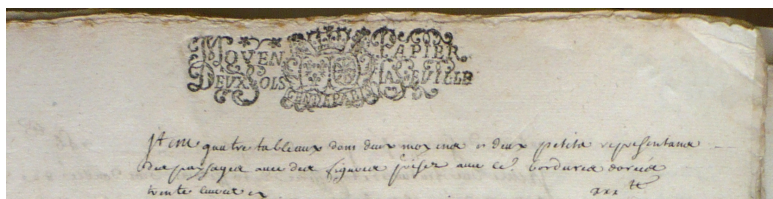 MOYEN PAPIER
DEUX SOLS LA FEUILLE
Item quatre tableaux dont deux moyens et deux petits représentans
des paysages avec des figures prisez avec les bordures dorées
trente livres cy xxx ll